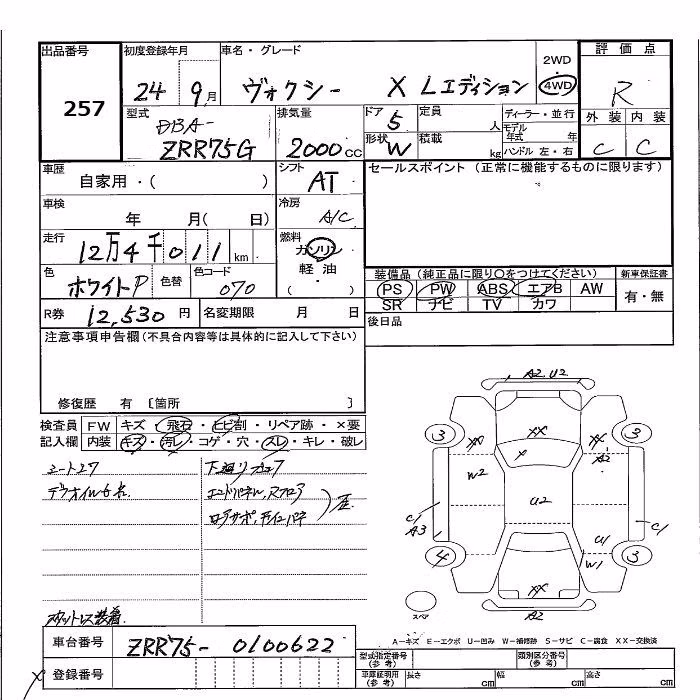 出品番号
257
初度登録年月
24 9月
車名・グレード
ヴォクシー X Lエディション
2WD
4WD
評価点
R
外装 内装
C C
型式
DBA-
ZRR75G
排気量
2000cc
ドア
5
定員
人
形状
W
積載
kg
ディーラー・並行
モデル年式 年
ハンドル 左・右
車歴
自家用・( )
シフト
AT
セールスポイント (正常に機能するものに限ります)
車検
年 月( 日)
冷房
A/C
走行
12万4千011km
燃料
ガソリン
軽油
( )
色
ホワイトP
色替
色コード
070
装備品(純正品に限り○をつけてください)
新車保証書
PS PW ABS エアB AW
SR ナビ TV カワ
有・無
R券 12,530円
名変期限 月 日
後日品
注意事項申告欄(不具合内容等は具体的に記入して下さい)
修復歴 有 〔箇所 〕
検査員記入欄
FW キズ・飛石・ヒビ割・リペア跡・×要
内装 キズ・汚レ・コゲ・穴・スレ・キレ・破レ
スタットレス装着
A2 U2
3 XX XX XX A2 3
W2
U2
C1
A3
C1
U1
W1
4 3
XX
スペア
A2
A-キズ E-エクボ U-凹み W-補修跡 S-サビ C-腐食 XX-交換済
車台番号
ZRR75-0100622
登録番号
型式指定番号(参考)
類別区分番号(参考)
車庫証明用(参考)
長さ cm
幅 cm
高さ cm